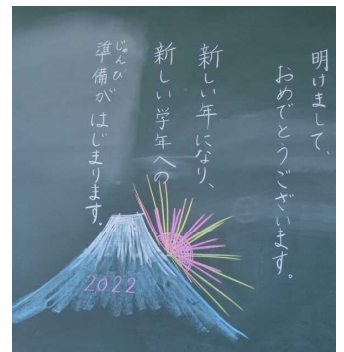 明けまして、
おめでとうございます。
新しい年になり、
新しい学年への
じゅんび
準備がはじまります。
2022